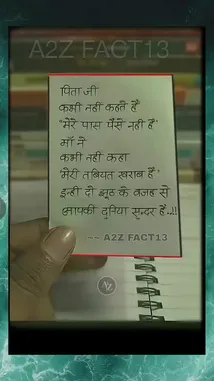 A2Z FACT13
पिता जी
कभी नहीं कहते है
"मेरे पास पैसे नहीं है"
माँ ने
कभी नहीं कहा
"मेरी तबियत खराब है"
इन्हीं दो झूठ के वजह से
आपकी दुनिया सुन्दर है..!!
~~ A2Z FACT13
AZ